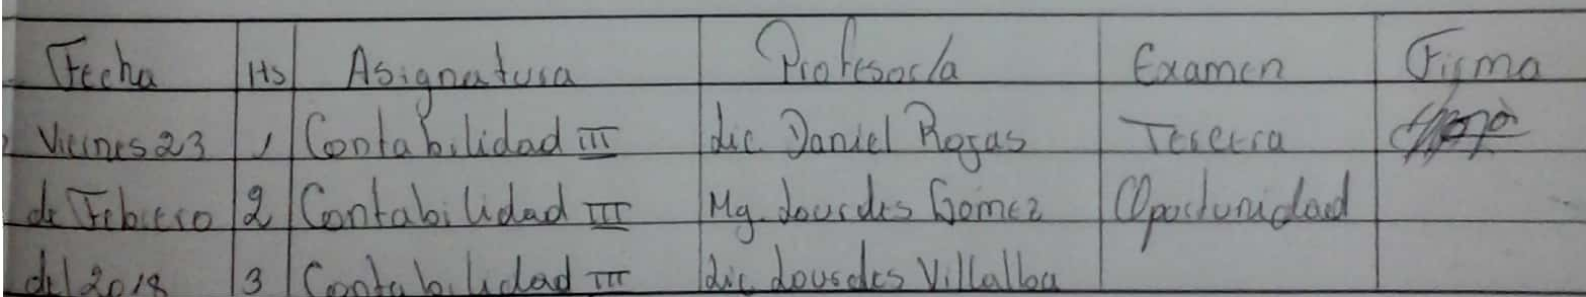 Fecha Hs Asignatura Profesor/a Examen Firma
Viernes 23 1 Contabilidad III Lic. Daniel Rojas Tercera
de Febrero 2 Contabilidad III Mg. Lourdes Gomez Oportunidad
del 2018 3 Contabilidad III Lic Lourdes Villalba